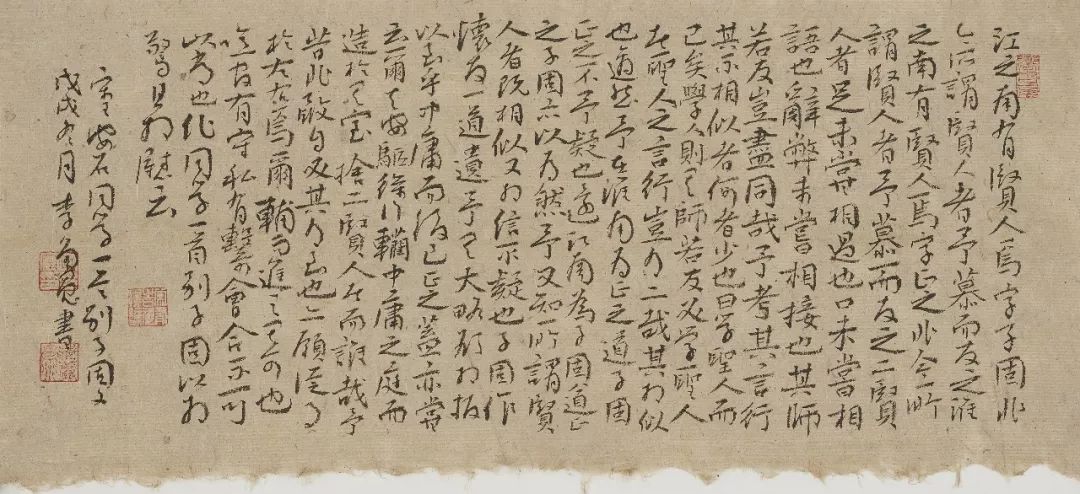 江之南有賢人焉字子固非
今所謂賢人者予慕而友之淮
之南有賢人焉字正之非今所
謂賢人者予慕而友之二賢
人者足未嘗相過也口未嘗相
語也辭弊未嘗相接也其師
若友豈盡同哉予考其言行
其不相似者何者少也曰學聖人而
已矣學人則其師若友必學聖人
者聖人之言行豈有二哉其相似
也適然予在淮南為正之道子固
正之不予疑也還江南為子固道正
之子固亦以為然予又知所謂賢
人者既相似又相信不疑也子固作
懷友一道遺予其大略欲相扳
以至乎中庸而後已正之蓋亦嘗
云爾夫安驅徐行轥中庸之庭而
造於其室捨二賢人者而誰哉予
昔非敢自必其有至也亦願從事
於左右焉爾輔而進之其可也
噫官有守私有繫會合不可
以常也作同學一首別子固以相
警且相慰云
宋王安石同學一首別子固文
戊戌冬月 李書